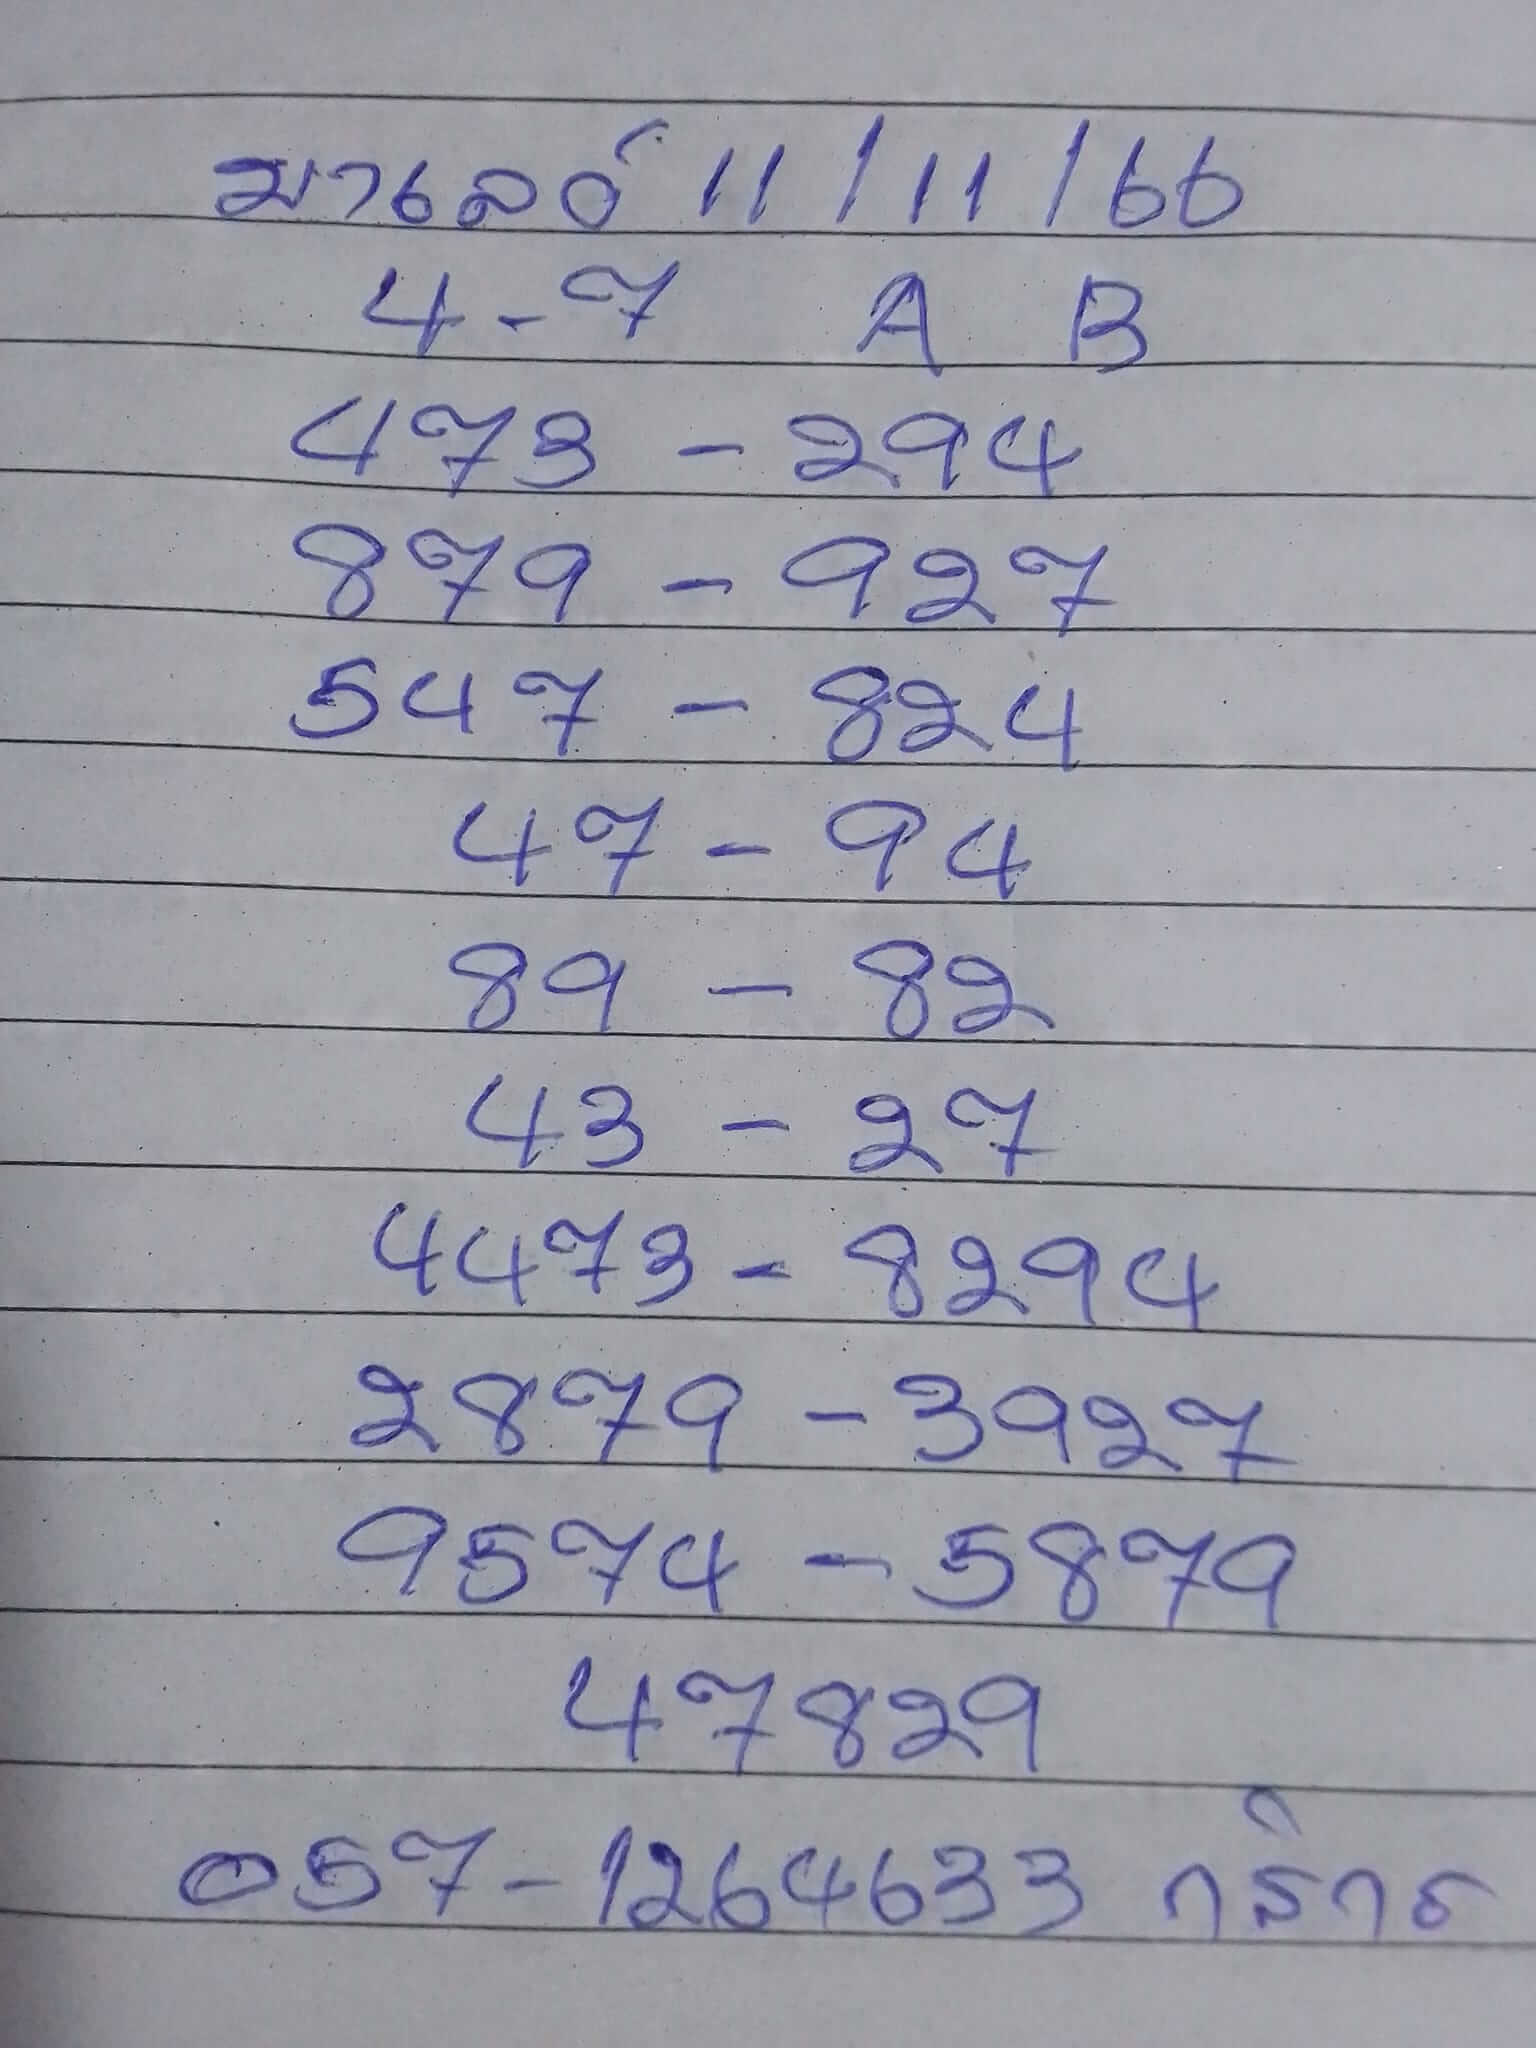 มาเลย์ 11/11/66
4-7 A B
473-294
879-927
547-824
47-94
89-82
43-27
4473-8294
2879-3927
9574-5879
47829
057-1264633 กสิกร